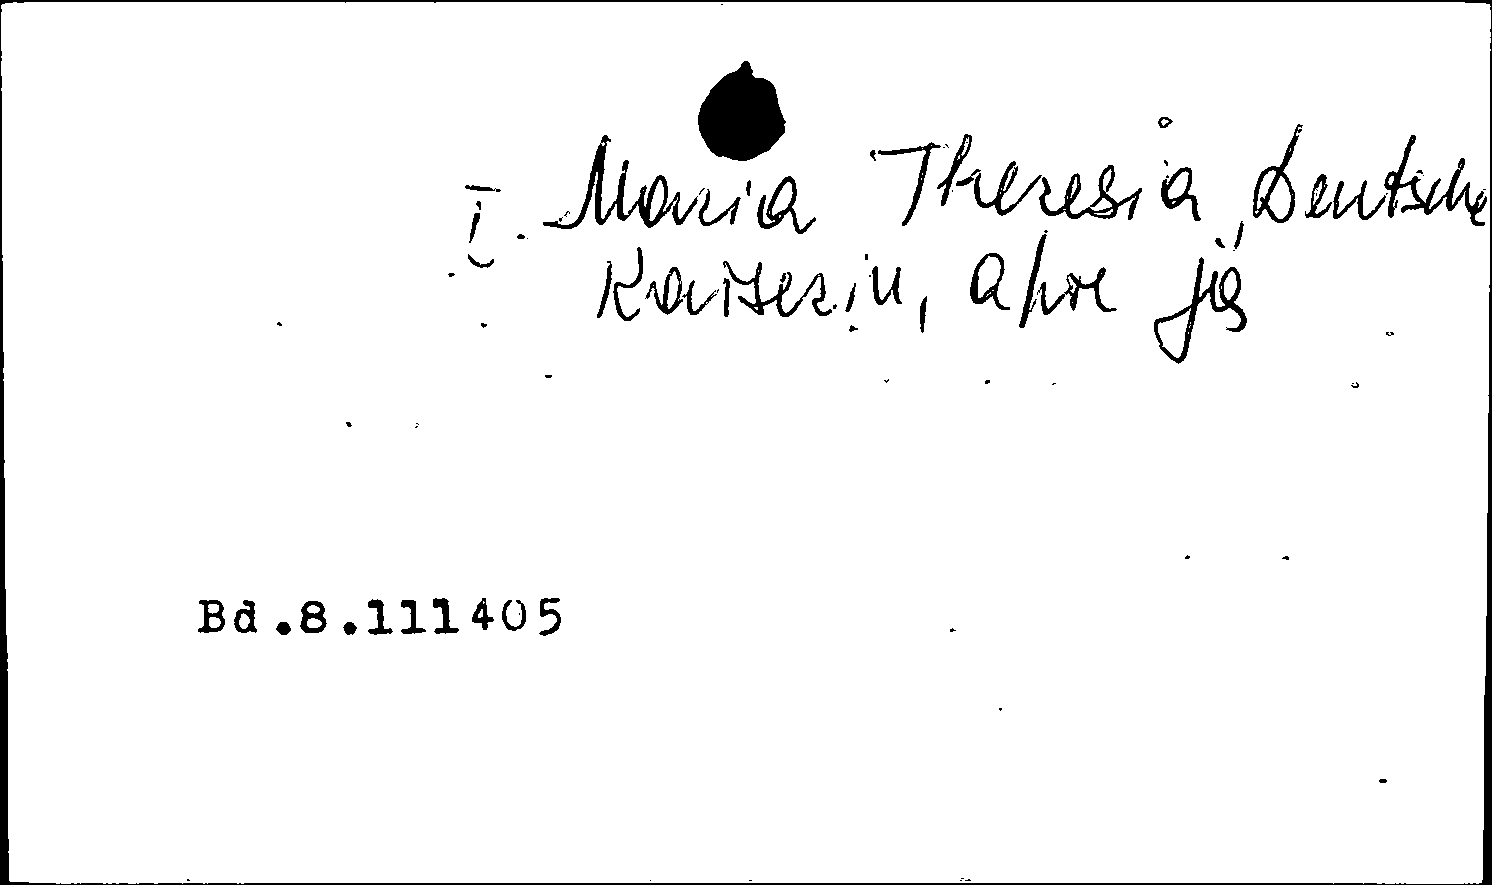 I. Maria Theresia, Deutsche
Kaiserin,
Bd.8.111405